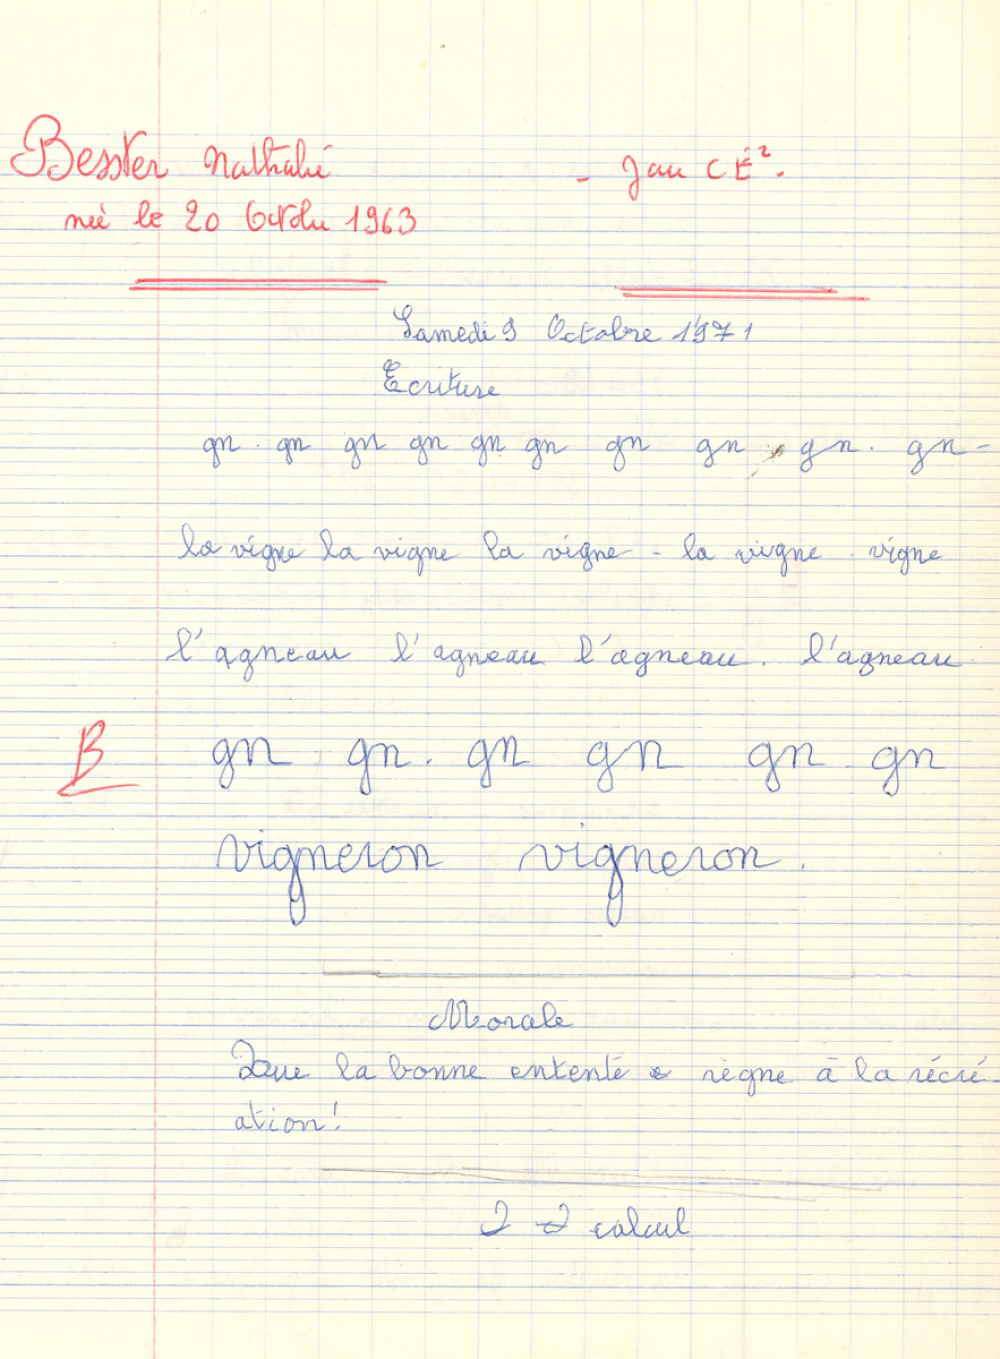 Bester Nathalie - Jau CE².
née le 20 Octobre 1963
Samedi 9 Octobre 1971
Ecriture
gn . gn gn gn gn gn gn gn . gn . gn -
la vigne la vigne la vigne - la vigne . vigne
l'agneau l'agneau l'agneau . l'agneau
B gn gn . gn gn gn . gn
vigneron vigneron .
Morale
Que la bonne entente règne à la récré-
ation !
calcul